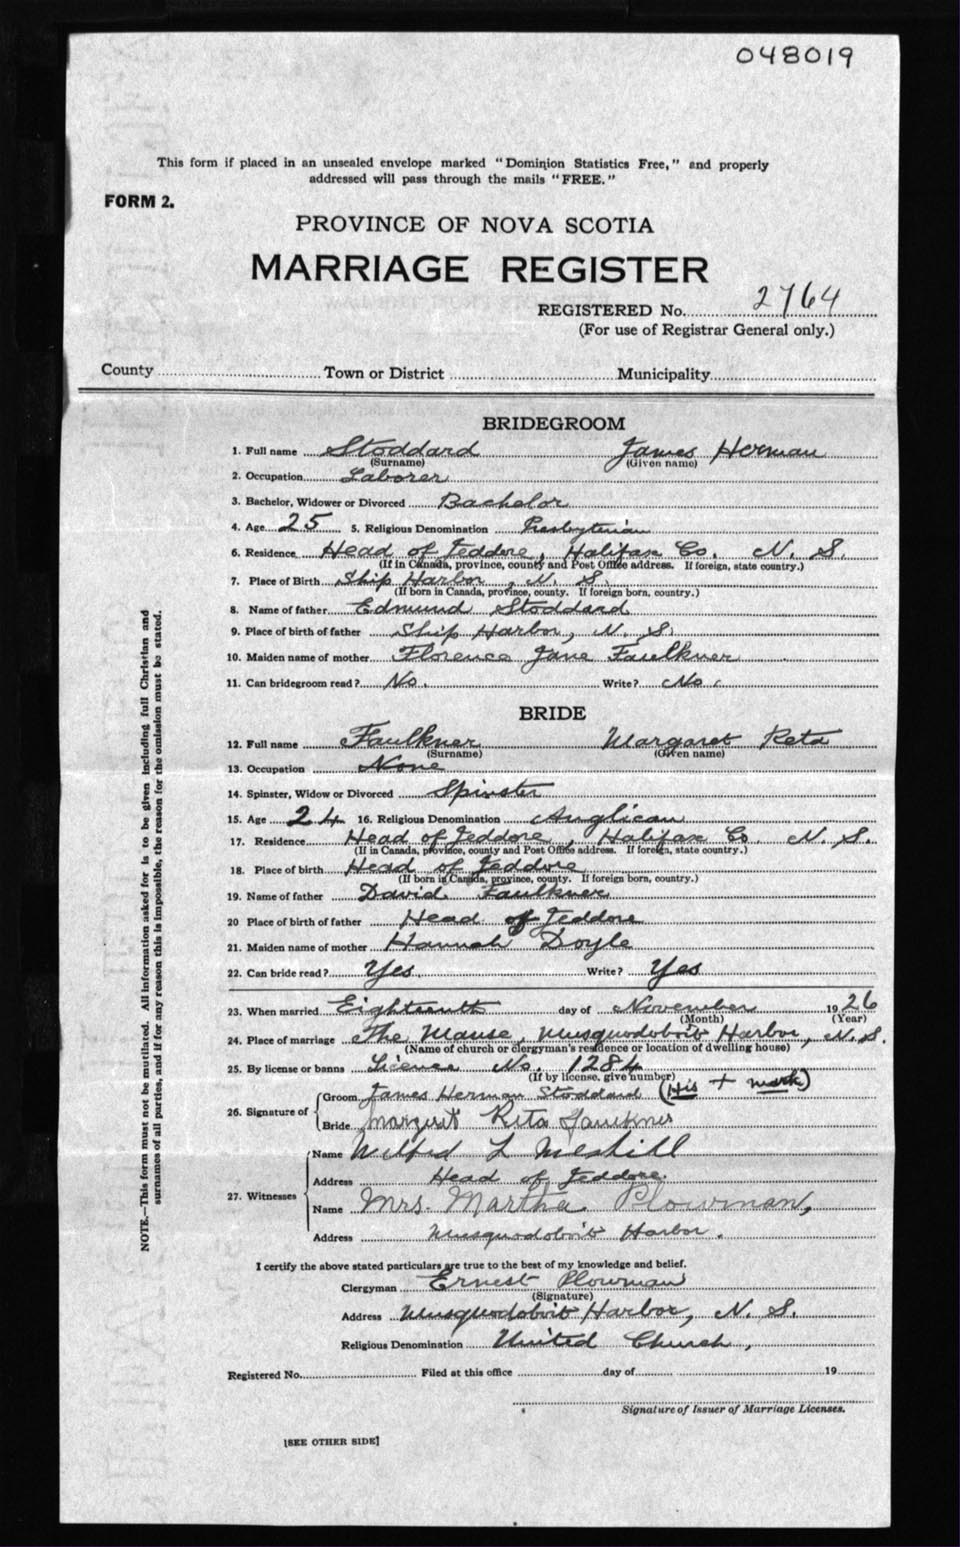 048019
This form if placed in an unsealed envelope marked "Dominion Statistics Free," and properly
addressed will pass through the mails "FREE."
FORM 2.
PROVINCE OF NOVA SCOTIA
MARRIAGE REGISTER
REGISTERED No. 2764
(For use of Registrar General only.)
County Town or District Municipality
BRIDEGROOM
1. Full name Stoddard James Herman
(Surname) (Given name)
2. Occupation Laborer
3. Bachelor, Widower or Divorced Bachelor
4. Age 25 5. Religious Denomination Presbyterian
6. Residence Head of Jeddore, Halifax Co. N. S.
(If in Canada, province, county and Post Office address. If foreign, state country.)
7. Place of Birth Ship Harbor, N. S.
(If born in Canada, province, county. If foreign born, country.)
8. Name of father Edmund Stoddard
9. Place of birth of father Ship Harbor, N. S.
10. Maiden name of mother Florence Jane Faulkner
11. Can bridegroom read? No. Write? No.
BRIDE
12. Full name Faulkner Margaret Reta
(Surname) (Given name)
13. Occupation None
14. Spinster, Widow or Divorced Spinster
15. Age 24 16. Religious Denomination Anglican
17. Residence Head of Jeddore, Halifax Co. N. S.
(If in Canada, province, county and Post Office address. If foreign, state country.)
18. Place of birth Head of Jeddore
(If born in Canada, province, county. If foreign born, country.)
19. Name of father David Faulkner
20 Place of birth of father Head of Jeddore
21. Maiden name of mother Hannah Doyle
22. Can bride read? Yes. Write? Yes
23. When married Eighteenth day of November 1926
(Month) (Year)
24. Place of marriage The Manse, Musquodoboit Harbor, N. S.
(Name of church or clergyman's residence or location of dwelling house)
25. By license or banns License No. 1284
(If by license, give number)
26. Signature of Groom James Herman Stoddard (His + mark)
Bride Margaret Reta Faulkner
27. Witnesses Name Wilfred L
Address Head of Jeddore.
Name Mrs. Martha Plowman,
Address Musquodoboit Harbor.
I certify the above stated particulars are true to the best of my knowledge and belief.
Clergyman Ernest Plowman
(Signature)
Address Musquodoboit Harbor, N. S.
Religious Denomination United Church,
Registered No. Filed at this office day of 19
Signature of Issuer of Marriage Licenses.
[SEE OTHER SIDE]
NOTE.—This form must not be mutilated. All information asked for is to be given including full Christian and
surnames of all parties, and if for any reason this is impossible, the reason for the omission must be stated.